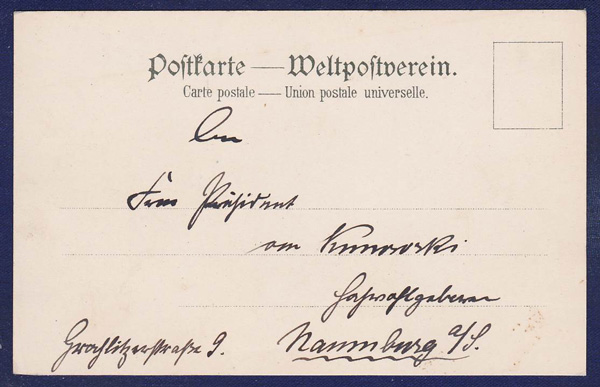 Postkarte — Weltpostverein.
Carte postale — Union postale universelle.
An
Frau Präsident
von Kunowski
Hochwohlgeboren
Naumburg a/S.
Grochlitzerstraße 9.